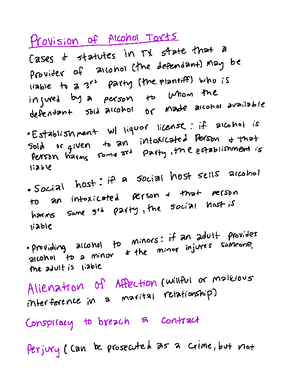 Provision of Alcohol Torts
Cases & statutes in TX state that a
provider of alcohol (the defendant) may be
liable to a 3rd party (the plaintiff) who is
injured by a person to whom the
defendant sold alcohol or made alcohol available
• Establishment w/ liquor license: if alcohol is
sold or given to an intoxicated person & that
person harms some 3rd party, the establishment is
liable
• Social host: if a social host sells alcohol
to an intoxicated person & that person
harms some 3rd party, the social host is
liable
• Providing alcohol to minors: if an adult provides
alcohol to a minor & the minor injures someone,
the adult is liable
Alienation of Affection (willful or malicious
interference in a marital relationship)
Conspiracy to breach a contract
Perjury (can be prosecuted as a crime, but not